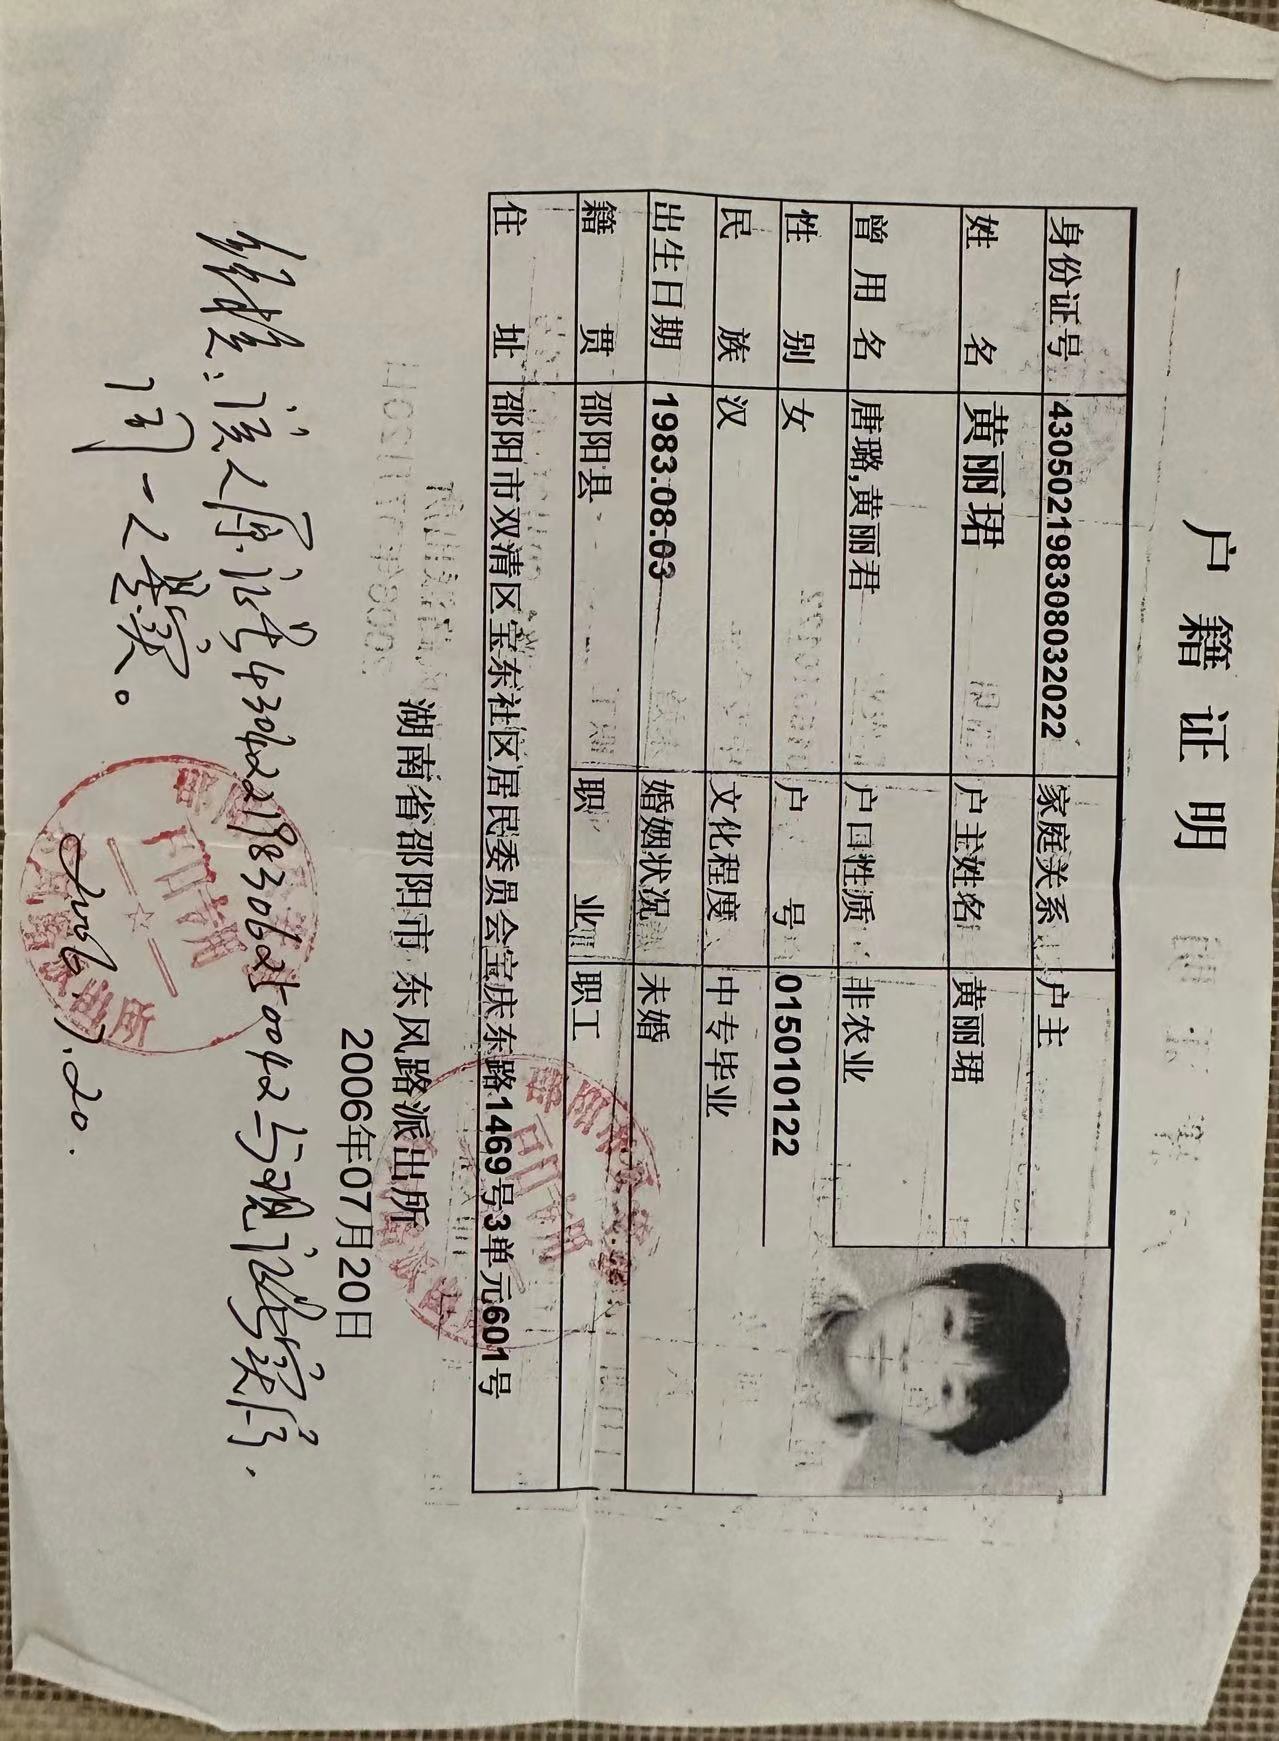 户籍证明
身份证号 430502198308032022 家庭关系 户主
姓名 黄丽珺 户主姓名 黄丽珺
曾用名 唐璐,黄丽君 户口性质 非农业
性别 女 户号 015010122
民族 汉 文化程度 中专毕业
出生日期 1983.08.03 婚姻状况 未婚
籍贯 邵阳县 职业 职工
住址 邵阳市双清区宝东社区居民委员会宝庆东路1469号3单元601号
湖南省邵阳市 东风路派出所
2006年07月20日
经核:该人原证号
与现证号实属,
同一人属实。
2006.7.20.
户口专用